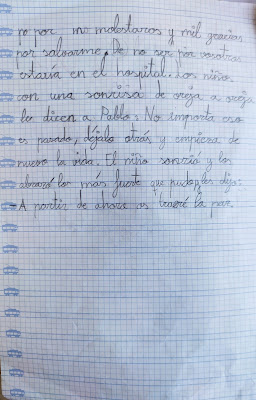 no por no molestaros y mil gracias
por salvarme. De no ser por vosotros
estaría en el hospital. Los niños
con una sonrisa de oreja a oreja
le dicen a Pablo: No importa eso
es pasado, déjalo atrás y empieza de
nuevo la vida. El niño sonrió y los
abrazó lo más fuerte que pudo y les dijo:
- A partir de ahora os traeré la paz.